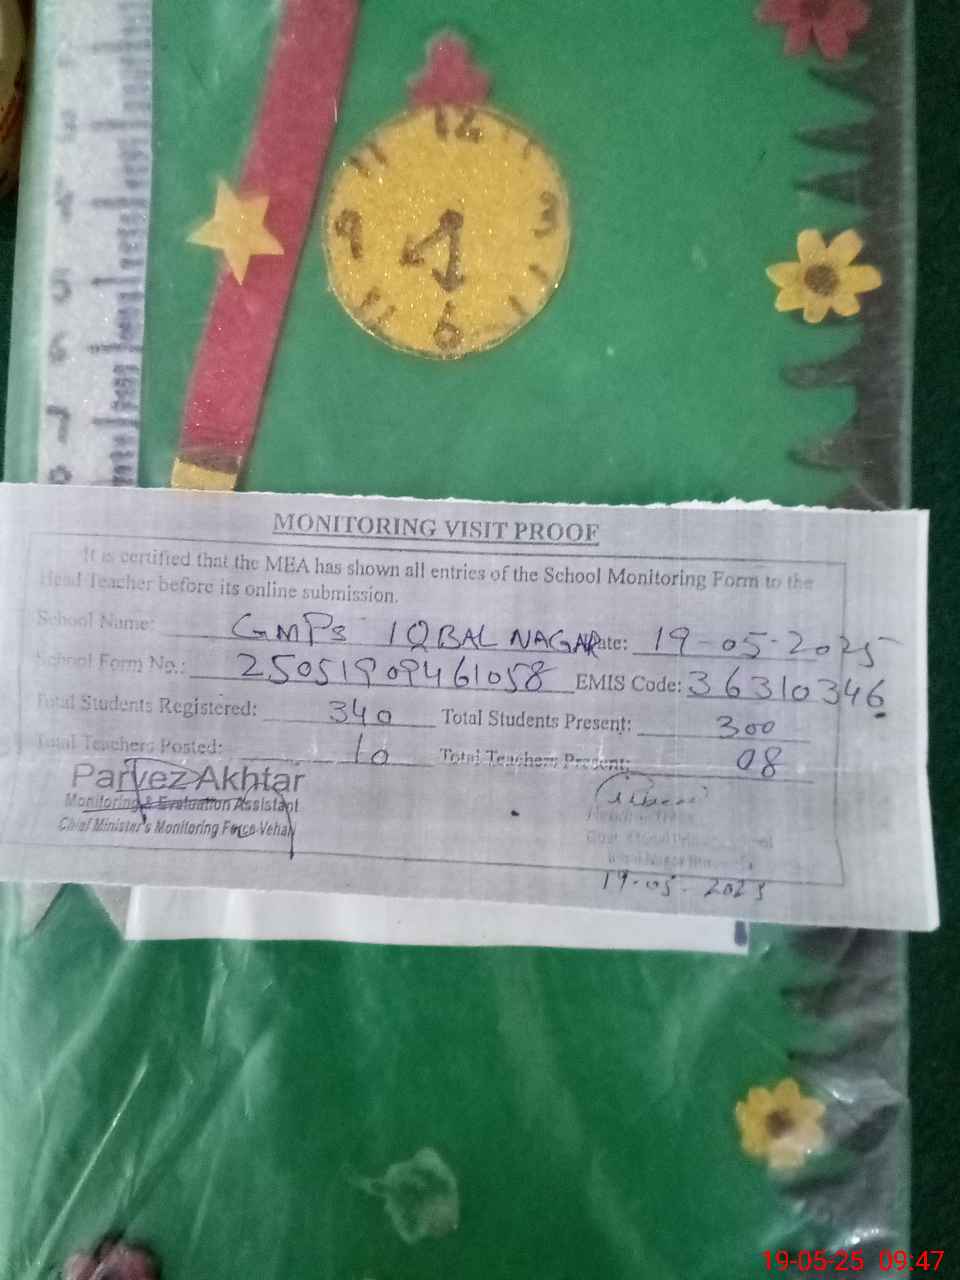 12
11
1
9
3
6
3
4
5
6
7
MONITORING VISIT PROOF
It is certified that the MEA has shown all entries of the School Monitoring Form to the
Head Teacher before its online submission.
School Name: GMPS IQBAL NAGAR Date: 19-05-2025
School Form No.: 25051909461058 EMIS Code: 36310346
Total Students Registered: 340 Total Students Present: 300
Total Teachers Posted: 10 Total Teachers Present: 08
Parvez Akhtar
Monitoring & Evaluation Assistant
Chief Minister's Monitoring Force Vehari
19-05-2025
19-05-25 09:47